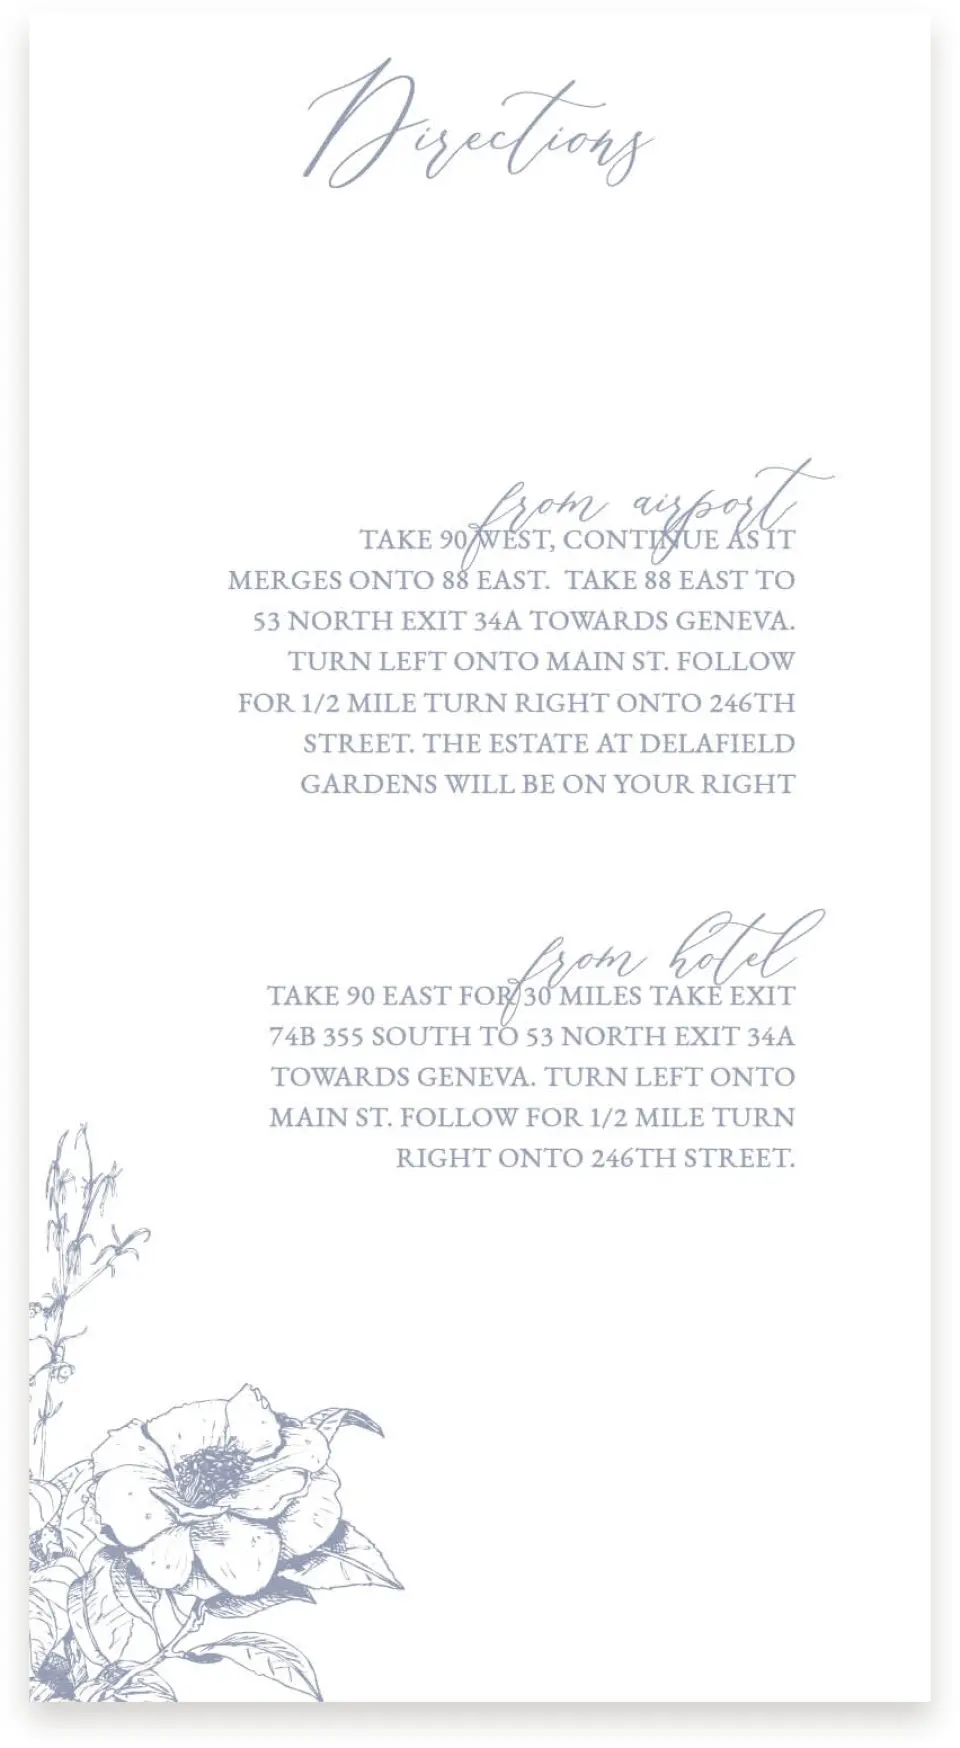 Directions
from airport
TAKE 90 WEST, CONTINUE AS IT
MERGES ONTO 88 EAST.  TAKE 88 EAST TO
53 NORTH EXIT 34A TOWARDS GENEVA.
TURN LEFT ONTO MAIN ST. FOLLOW
FOR 1/2 MILE TURN RIGHT ONTO 246TH
STREET. THE ESTATE AT DELAFIELD
GARDENS WILL BE ON YOUR RIGHT
from hotel
TAKE 90 EAST FOR 30 MILES TAKE EXIT
74B 355 SOUTH TO 53 NORTH EXIT 34A
TOWARDS GENEVA. TURN LEFT ONTO
MAIN ST. FOLLOW FOR 1/2 MILE TURN
RIGHT ONTO 246TH STREET.